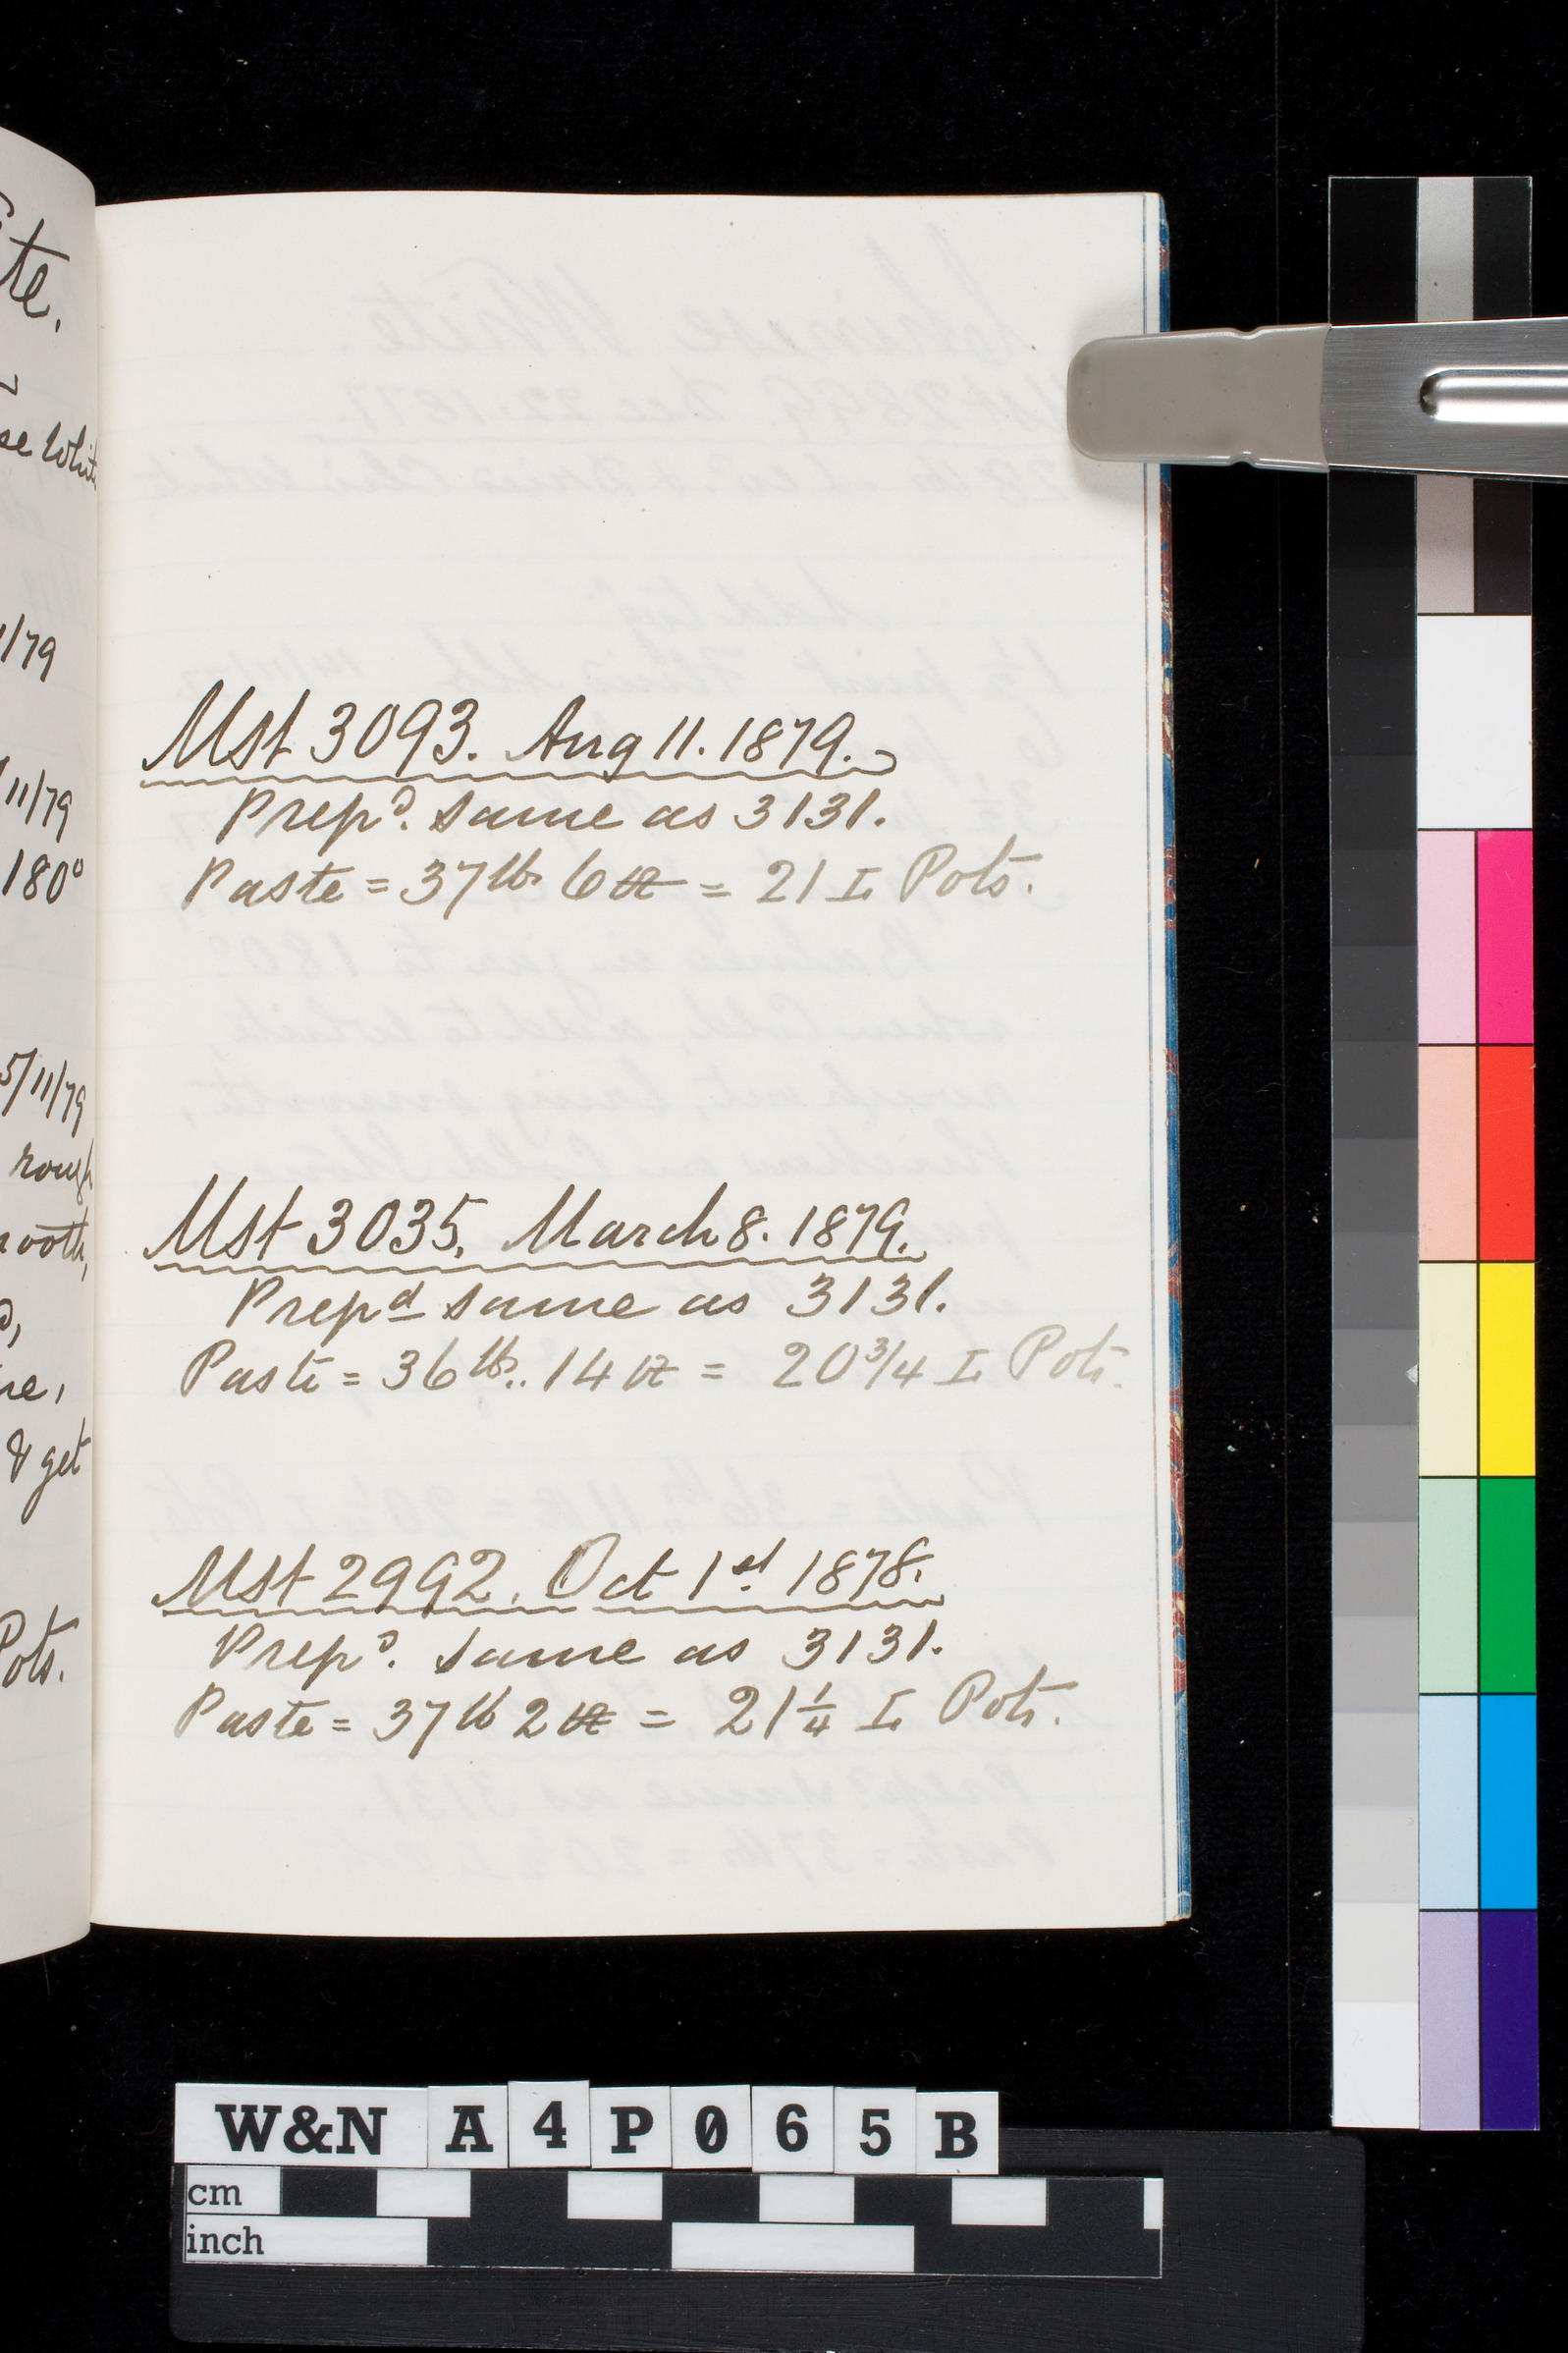 te.
se White
/79
11/79
180°
5/11/79
rough
& get
Pots.
Mst 3093. Aug 11. 1879.
Prepd. same as 3131.
Paste = 37 lb 6 oz = 21 I Pots.
Mst 3035. March 8. 1879.
Prepd same as 3131.
Paste = 36 lbs. 14 oz = 20 3/4 I Pots.
Mst 2992. Oct 1st 1878.
Prepd. same as 3131.
Paste = 37 lb 2 oz = 21 1/4 I Pots.
W&N A4P065B
cm
inch